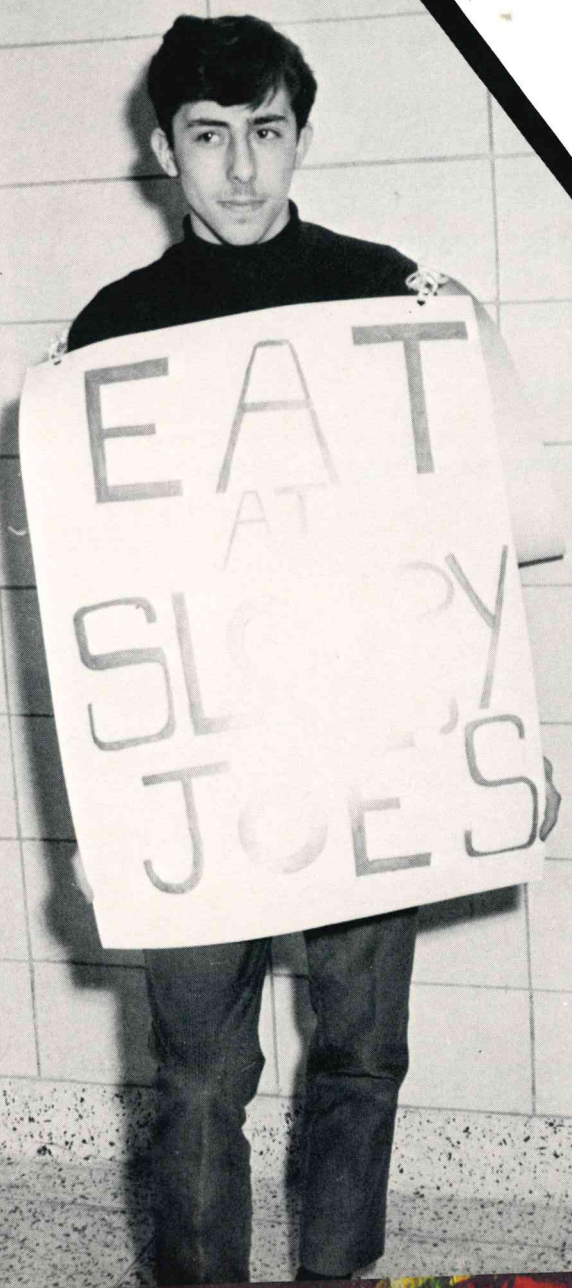 EAT
AT
SLOPPY
JOE'S